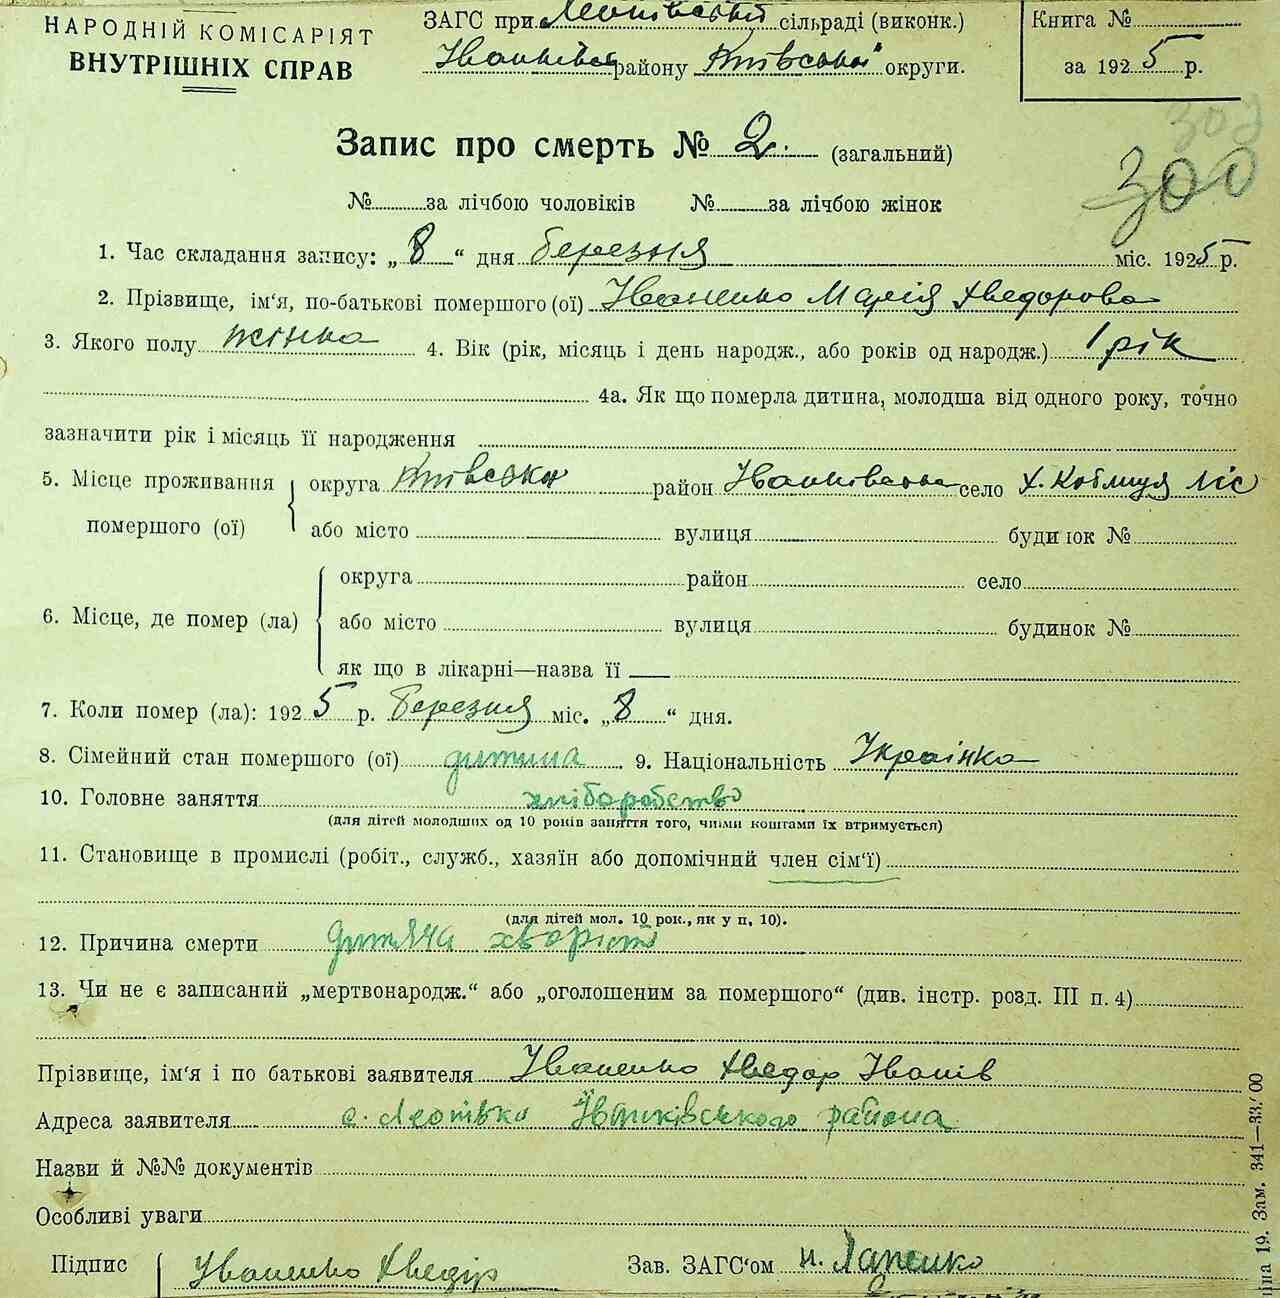 НАРОДНІЙ КОМІСАРІЯТ
ВНУТРІШНІХ СПРАВ
ЗАГС при Леонівській сільраді (виконк.)
Іванківськ району Київської округи.
Книга №
за 1925 р.
302
300
Запис про смерть № 2. (загальний)
№ за лічбою чоловіків № за лічбою жінок
1. Час складання запису: „8“ дня березня міс. 1925 р.
2. Прізвище, ім‘я, по-батькові помершого (ої) Іваненко Марія Хведорова
3. Якого полу жінка 4. Вік (рік, місяць і день народж., або років од народж.) 1 рік
4а. Як що померла дитина, молодша від одного року, точно
зазначити рік і місяць її народження
5. Місце проживання помершого (ої) округа Київська район Іванківська село х. Ліс
або місто вулиця будинок №
6. Місце, де помер (ла) округа район село
або місто вулиця будинок №
як що в лікарні—назва її
7. Коли помер (ла): 1925 р. березня міс. „8“ дня.
8. Сімейний стан помершого (ої) дитина 9. Національність Українка
10. Головне заняття хліборобство
(для дітей молодших од 10 років заняття того, чиїми коштами їх втримується)
11. Становище в промислі (робіт., служб., хазяїн або допомічний член сім‘ї)
(для дітей мол. 10 рок., як у п. 10).
12. Причина смерти дитяча хворість
13. Чи не є записаний „мертвонародж.“ або „оголошеним за помершого“ (див. інстр. розд. III п. 4)
Прізвище, ім‘я і по батькові заявителя Іваненко Хведор Іванів
Адреса заявителя с. Леонівка Іванківського района
Назви й №№ документів
Особливі уваги
Підпис Іваненко Хведір Зав. ЗАГС‘ом Н. Лапенко
19. Зам. 341—33.'00